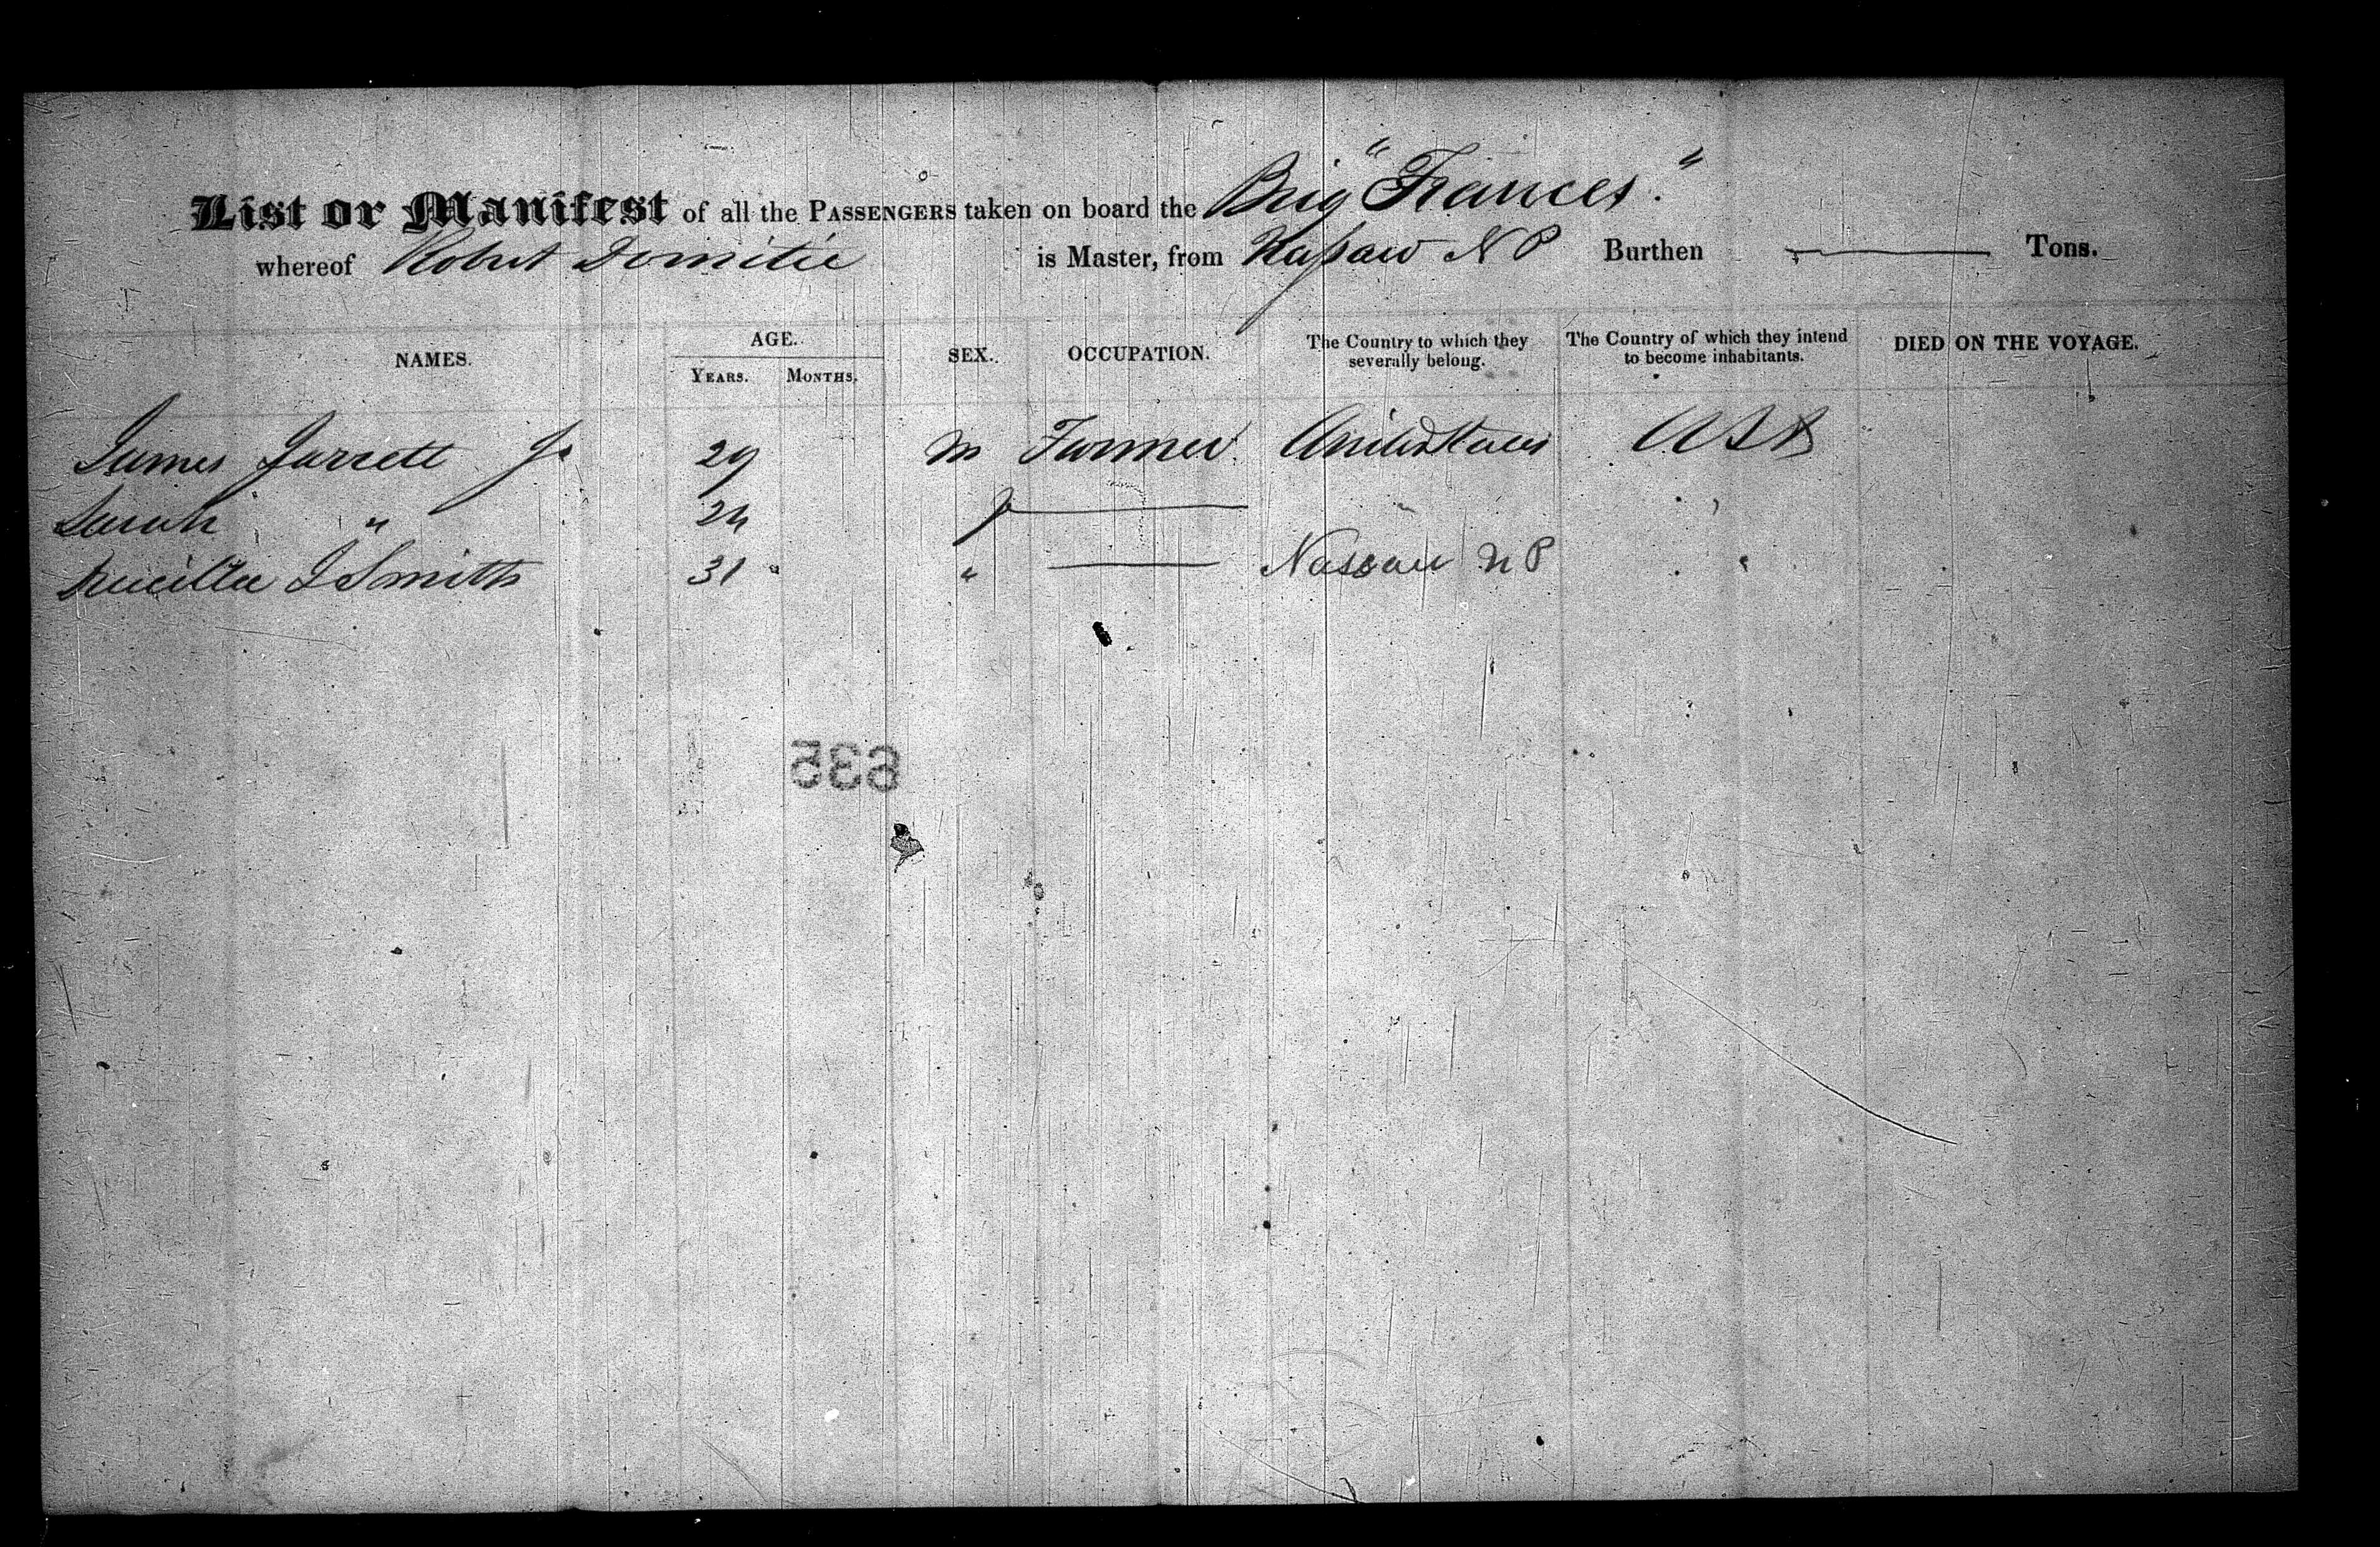 List or Manifest of all the PASSENGERS taken on board the Brig "Frances."
whereof Robert is Master, from Nassau N P Burthen Tons.
NAMES. AGE. YEARS. MONTHS. SEX. OCCUPATION. The Country to which they severally belong. The Country of which they intend to become inhabitants. DIED ON THE VOYAGE.
James Jarrett Jr 29 m Farmer United States U S A
Sarah " 24 f
J Smith 31 " " Nassau N P "